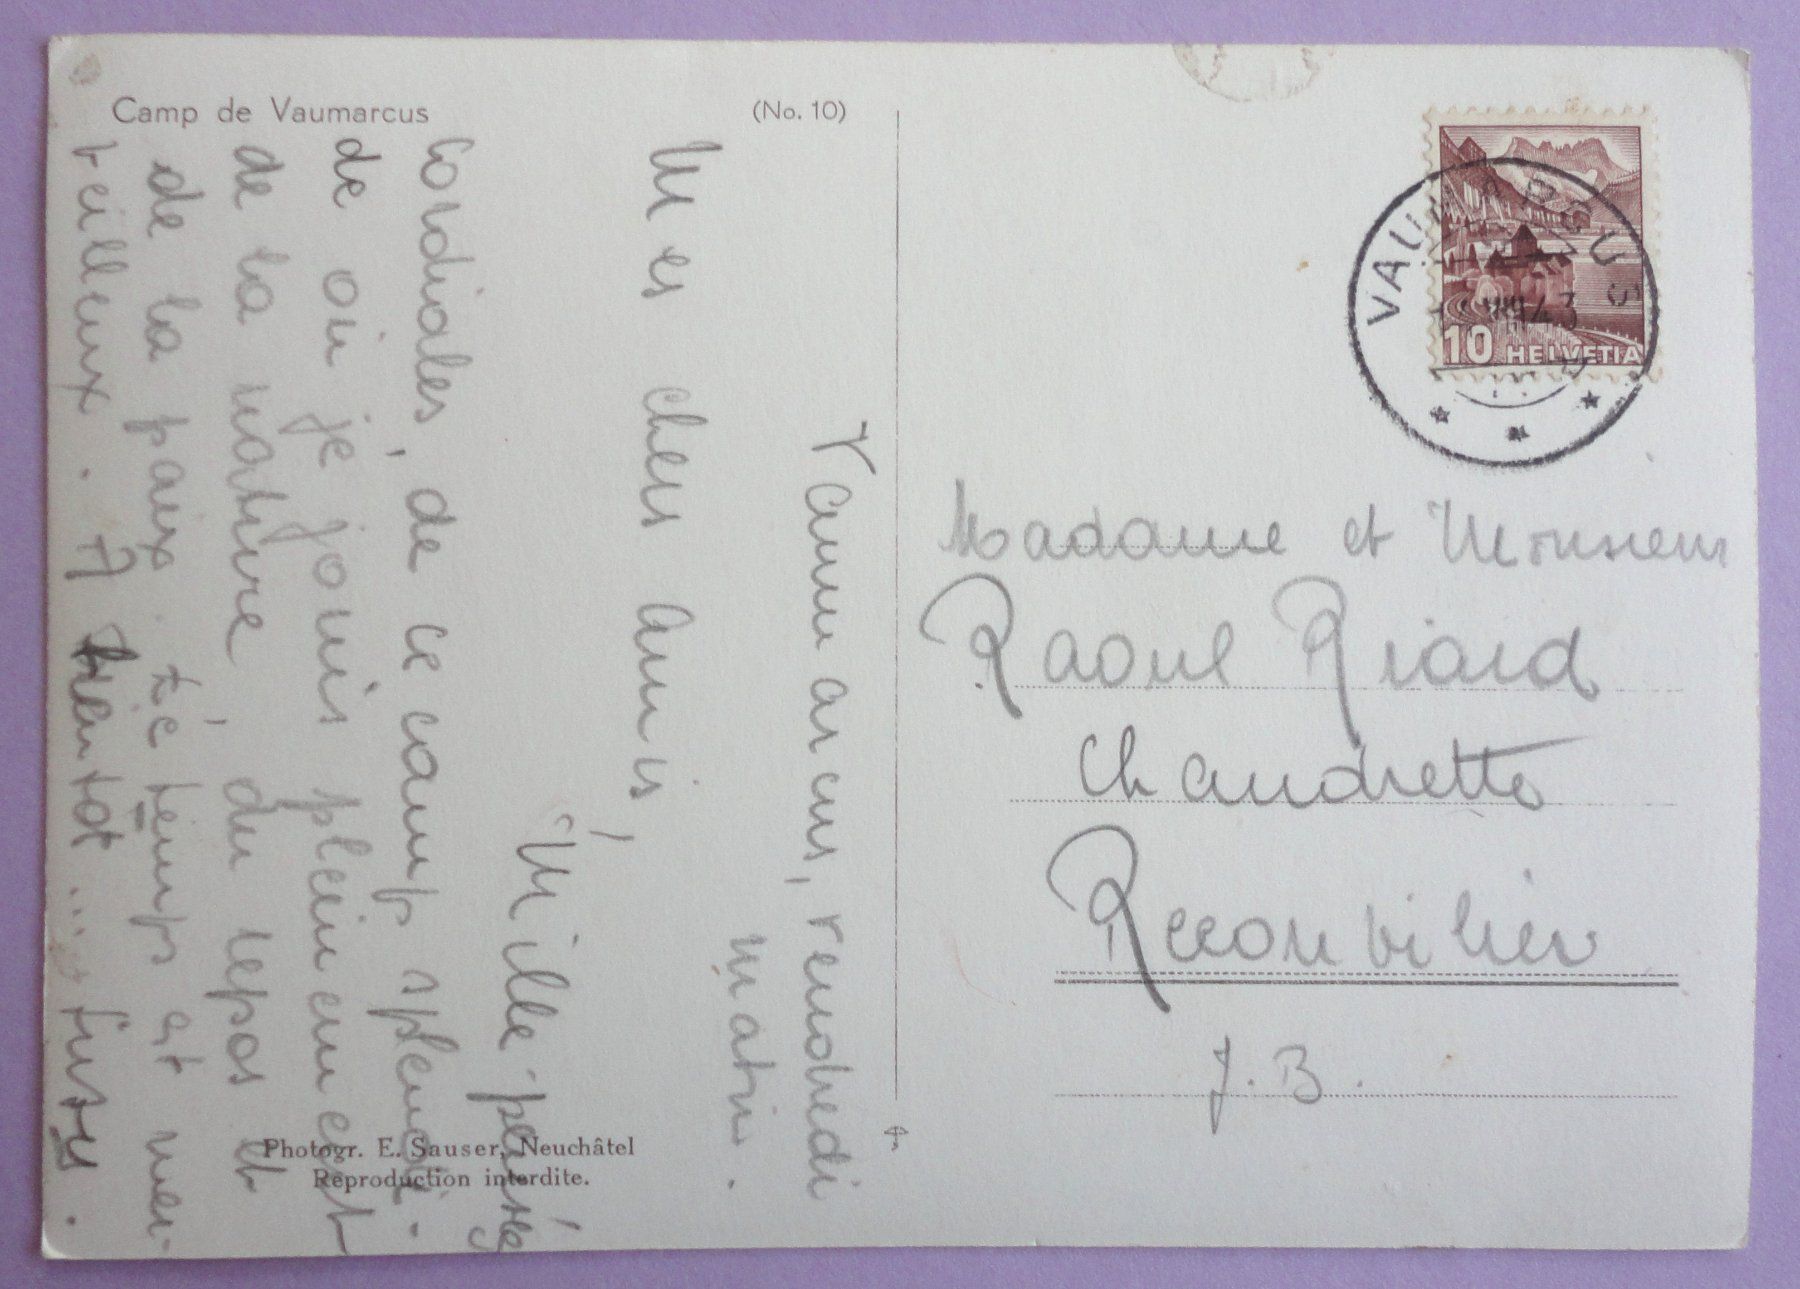 Camp de Vaumarcus
(No. 10)
Vaumarcus, vendredi
matin.
Mes chers amis,
Mille pensées
cordiales, de ce camp splendi-
de où je jouis pleinement
de la nature, du repos et
de la paix. Le temps est mer-
veilleux. A bientôt...
Photogr. E. Sauser, Neuchâtel
Reproduction interdite.
VAUMARCUS
43
10 HELVETIA
Madame et Monsieur
Raoul Riard
Chaudrette
Reconvilier
J. B.